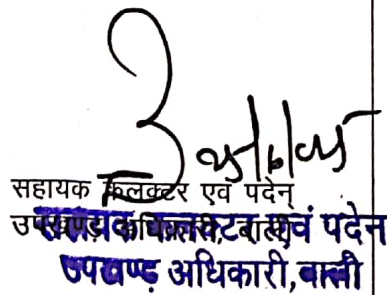 सहायक कलक्टर एवं पदेन
उपखण्ड अधिकारी, बाली
सहायक कलक्टर एवं पदेन
उपखण्ड अधिकारी, बाली